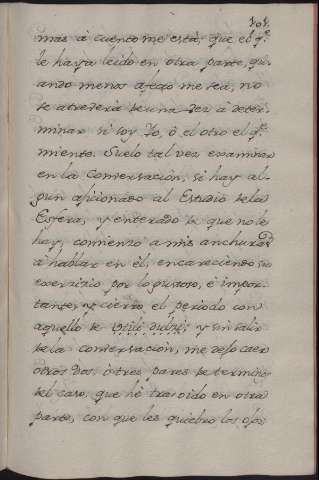 101.
mas à cuento me està, que el q.e
le haya leido en otra parte, qu-
ando menos afecto me sea, no
se atreverìa de una vez à deter-
minar si soy Yo, ò el otro el q.e
miente. Suelo tal vez examinar
en la Conversacion, si hay al-
gun aficionado al Estudio de la
Esfera, y enterado de que no le
hay, comienzo a mis anchuras
à hablar en èl, encareciendo su
exercizio por lo gustoso, è impor-
tante, y cierro el periodo con
aquello de utile dulci; y sin salir
de la conversacion, me dejo caer
otros dos, ò tres pares de terminos
del caso, que hè trahido en otra
parte, con que les quiebro los ojos